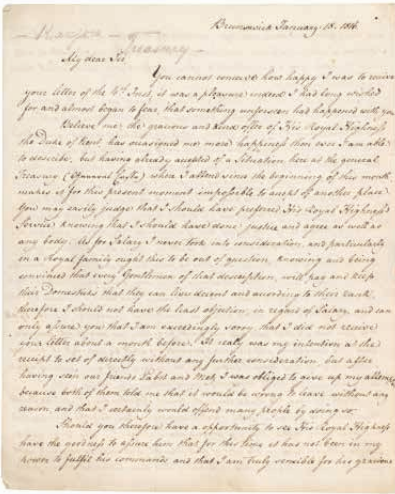 Brunswick January 18. 1814.
Treasury
My dear Sir,
You cannot conceive how happy I was to receive
your letter of the 4th Inst, it was a pleasure indeed I had long wished
for and almost began to fear, that something unforseen had happened with you
Believe me the gracious and kind offer of His Royal Highness
the Duke of Kent has occasioned me more happiness than ever I am able
to describe, but having already accepted of a Situation here at the general
Treasury where I attend since the beginning of this month
makes it for this present moment impossible to accept of another place
You may easily judge that I should have preferred His Royal Highness's
Service knowing that I should have done justice and agree as well as
any body. As for Salary I never took into consideration, and particularly
in a Royal family ought this to be out of question, knowing and being
convinced that every Gentleman of that description, will pay and keep
their Domesticks that they can live decent and according to their rank,
therefore I should not have the least objection, in regard of Salary, and can
only assure you that I am exceedingly sorry that I did not receive
your letter about a month before. It realy was my intention at the
receipt to set of directly without any further consideration but after
having seen our friends and I was obliged to give up my
because both of them told me that it would be wrong to leave without any
reason, and that I certainly would offend many people by doing so.
Should you therefore have a opportunity to see His Royal Highness
have the goodness to assure him that for this time it has not been in my
power to fulfil his commands and that I am truly sensible for his gracious